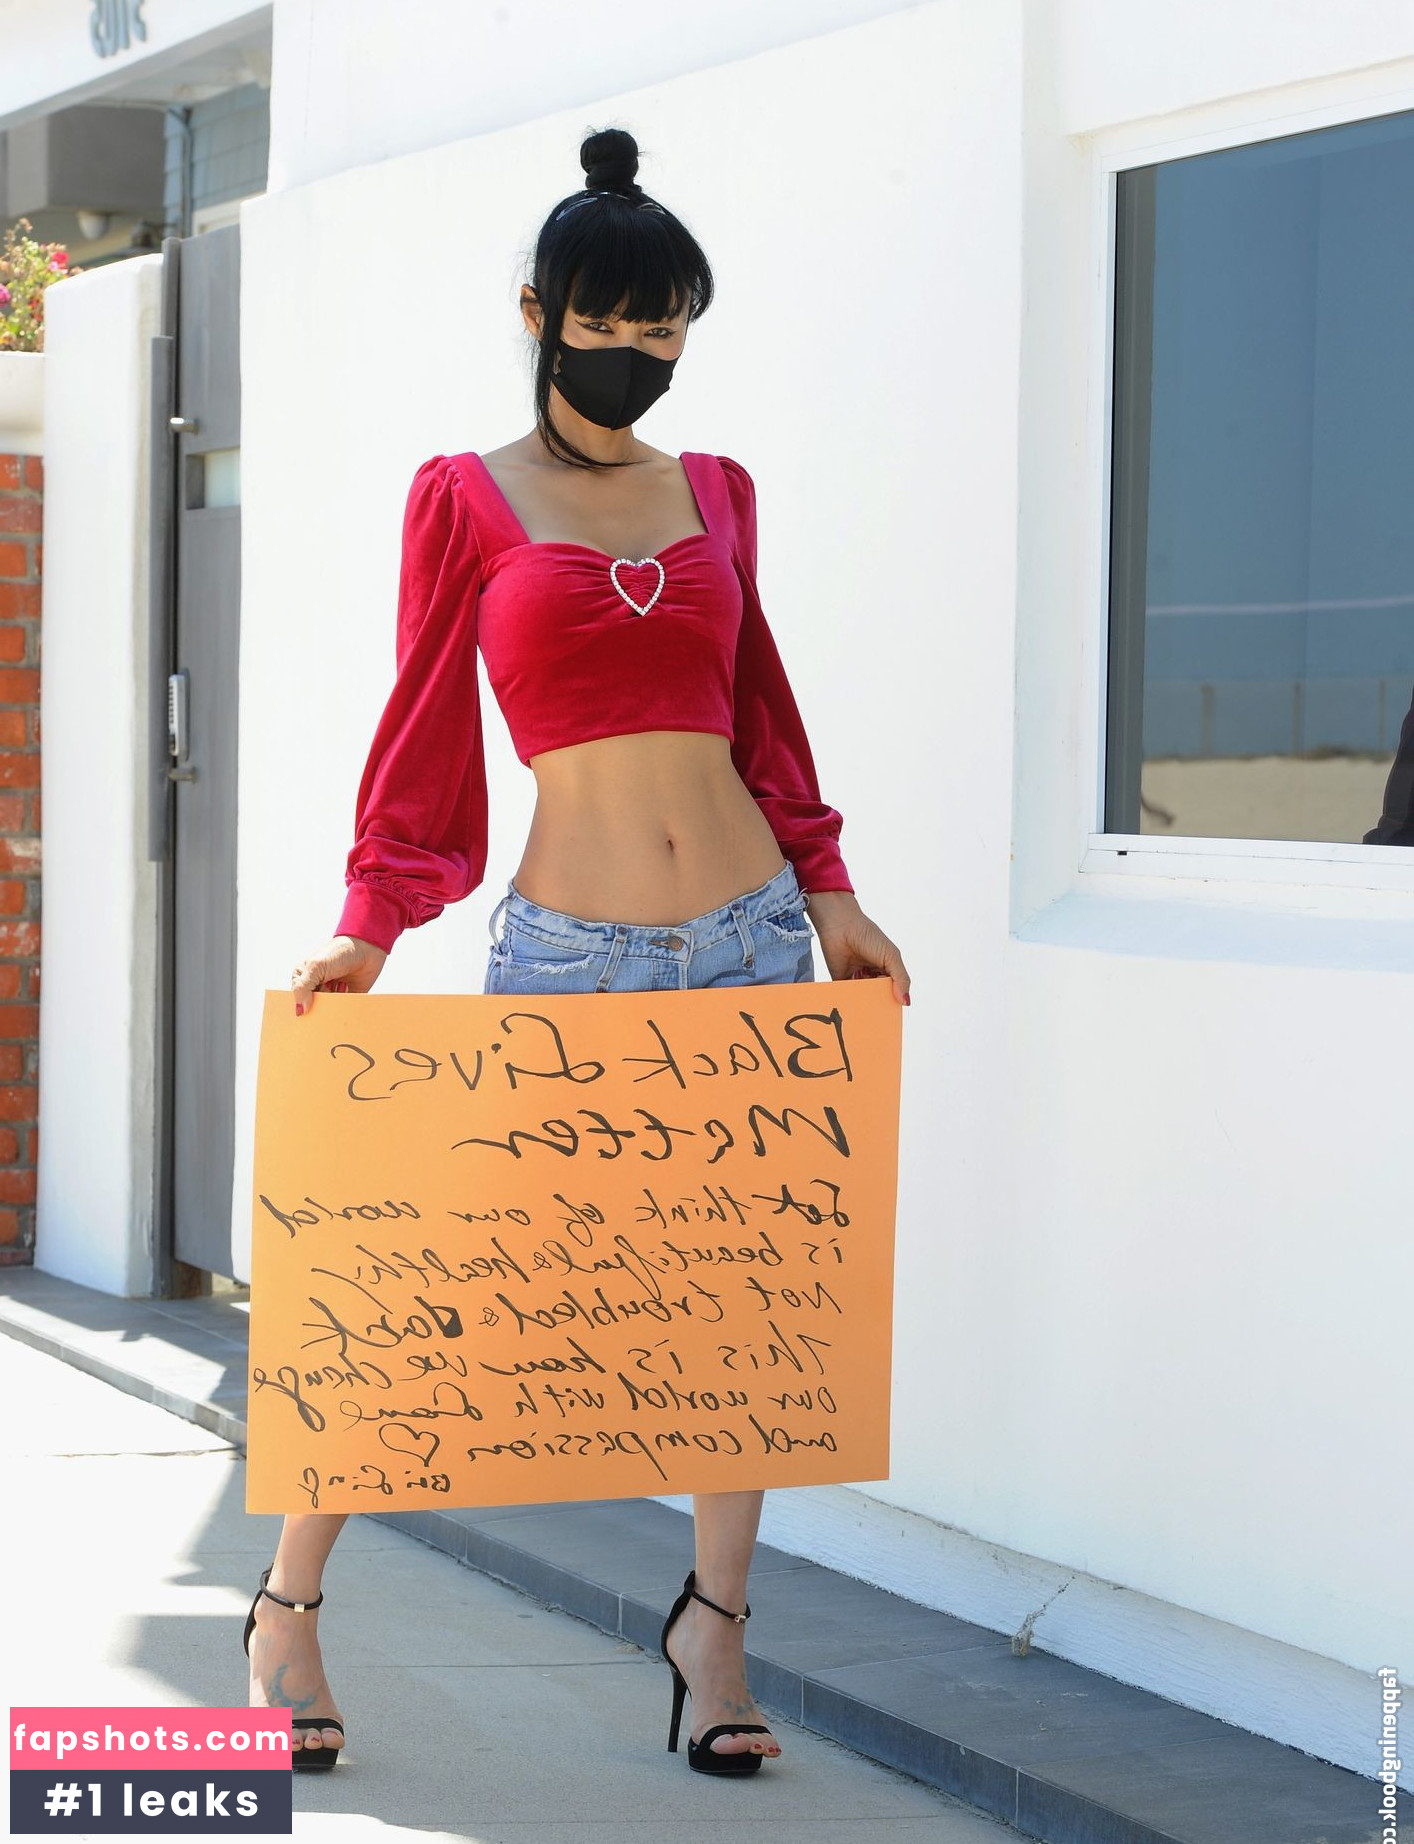 Black Lives
Matter
Let think of our world
is beautiful & healthy
Not troubled & dark
This is how we change
our world with Love
and compassion ♡
Bai Ling
fapshots.com
#1 leaks
fappeningbook.co